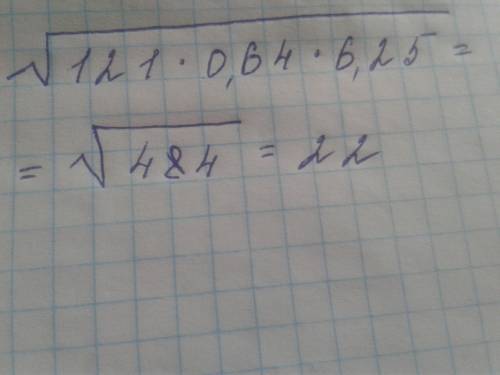 √121·0,64·6,25 =
= √484 = 22